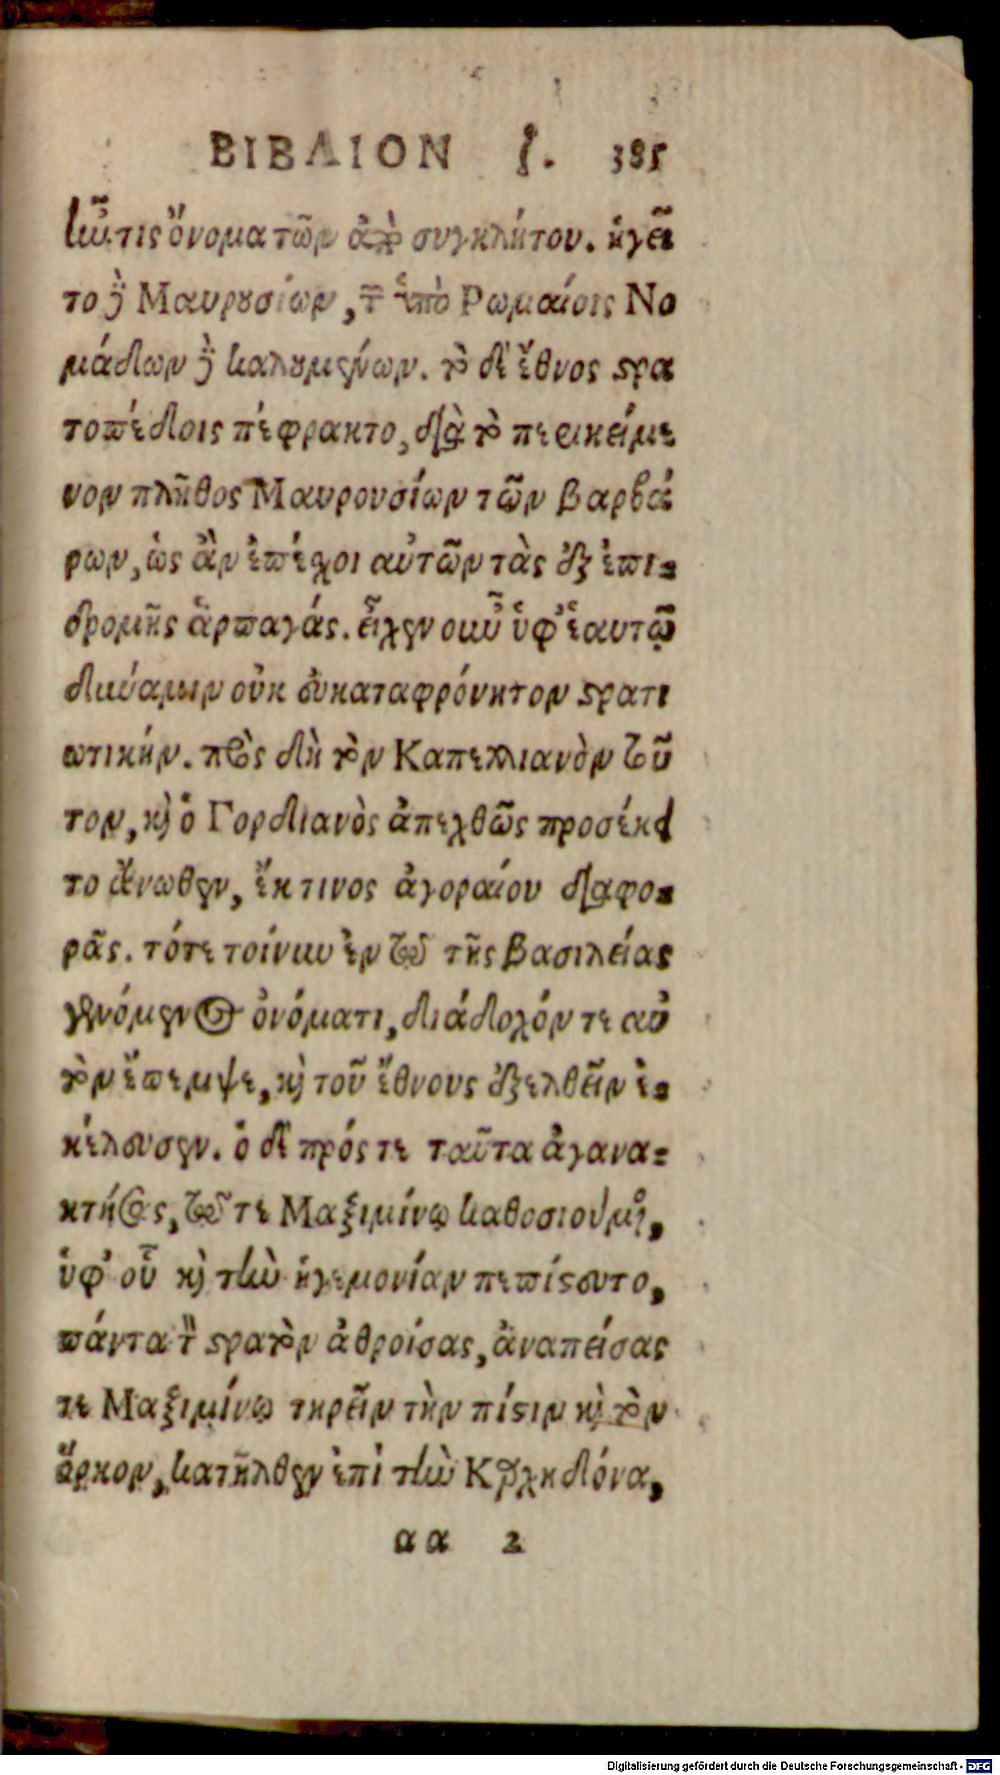 ΒΙΒΛΙΟΝ ζ. 385
ἦν τις ὄνομα τῶν ἀπὸ συγκλήτου. ἡγεῖ
το δὲ Μαυρουσίων, τῶν ὑπὸ Ρωμαίοις Νο
μάδων δὲ καλουμένων. τὸ δὲ ἔθνος στρα
τοπέδοις πέφρακτο, διὰ τὸ περικείμε
νον πλῆθος Μαυρουσίων τῶν βαρβά
ρων, ὡς ἂν ἐπέχοι αὐτῶν τὰς ἐξ ἐπι-
δρομῆς ἁρπαγάς. εἶχεν οὖν ὑφ' ἑαυτῷ
δύναμιν οὐκ εὐκαταφρόνητον στρατι
ωτικήν. πρὸς δὴ τὸν Καπελλιανὸν τοῦ
τον, καὶ ὁ Γορδιανὸς ἀπεχθῶς προσέκει
το ἄνωθεν, ἔκ τινος ἀγοραίου διαφο-
ρᾶς. τότε τοίνυν ἐν τῷ τῆς βασιλείας
γενόμενος ὀνόματι, διάδοχόν τε αὐ
τὸν ἔπεμψε, καὶ τοῦ ἔθνους ἐξελθεῖν ἐ-
κέλευσεν. ὁ δὲ πρός τε ταῦτα ἀγανα-
κτήσας, τῷ τε Μαξιμίνῳ καθοσιούμενος,
ὑφ' οὗ καὶ τὴν ἡγεμονίαν πεπίστευτο,
πάντα τὸν στρατὸν ἀθροίσας, ἀναπείσας
τε Μαξιμίνῳ τηρεῖν τὴν πίστιν καὶ τὸν
ὅρκον, κατῆλθεν ἐπὶ τὴν Καρχηδόνα,
αα 2
Digitalisierung gefördert durch die Deutsche Forschungsgemeinschaft - DFG